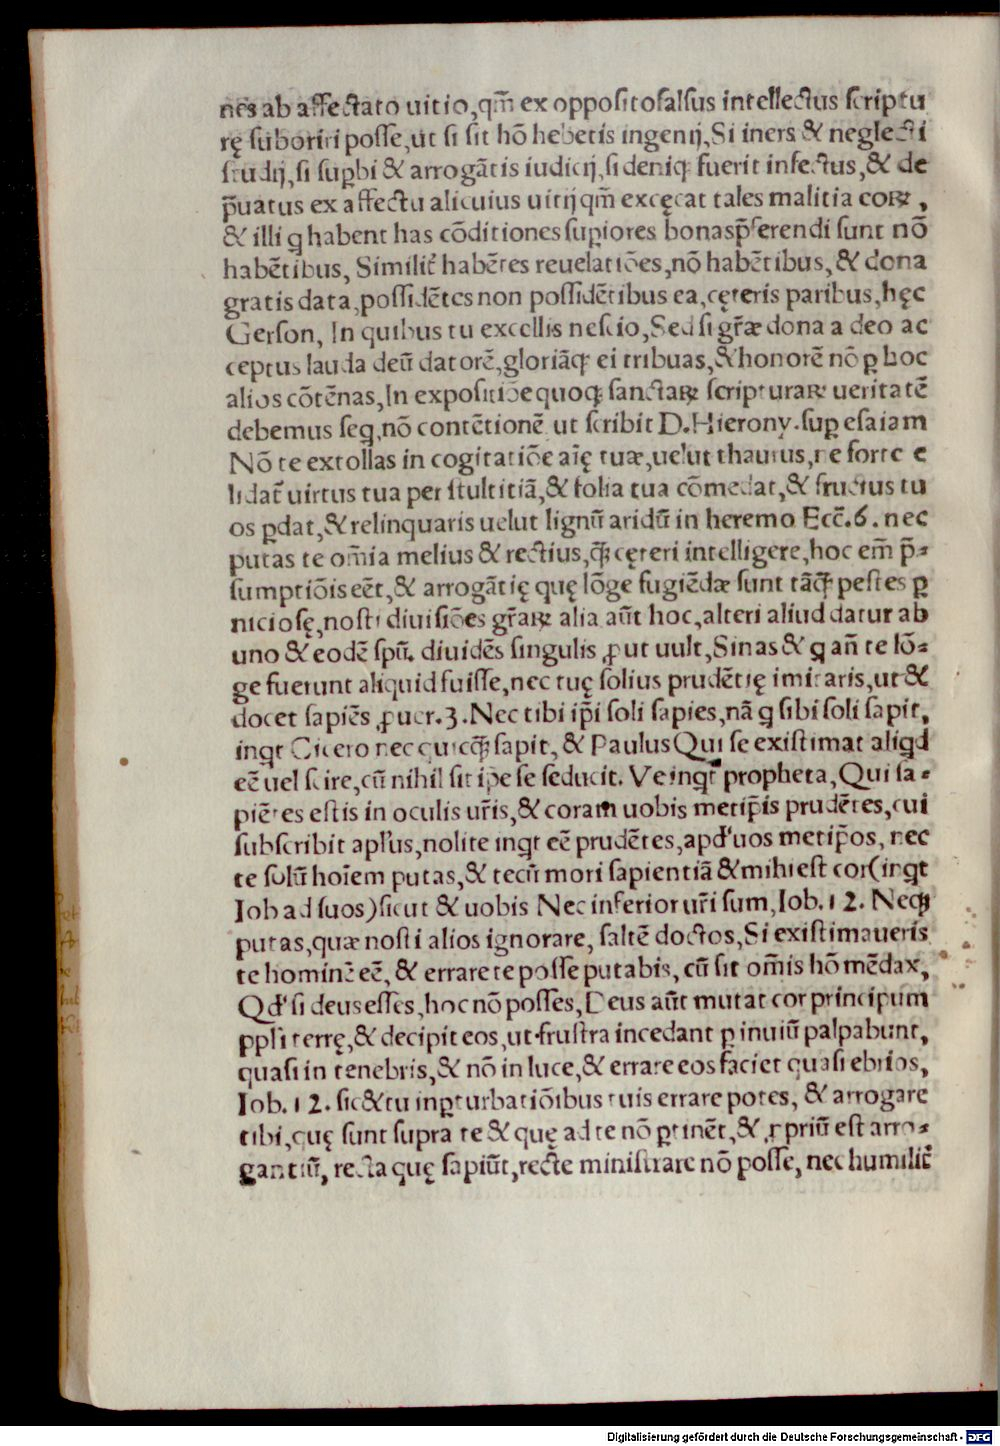 nes ab affectato uitio, qm̄ ex oppositofalsus intellectus scriptu
rę suboriri posse, ut si sit hō hebetis ingenij, Si iners & neglecti
studij, si sup̱bi & arrogātis iudicij, si deniq; fuerit infectus, & de
p̄uatus ex affectu alicuius uitij qm̄ excęcat tales malitia coꝝ,
& illi q habent has cōditiones sup̱iores bonas p̄ferendi sunt nō
habētibus, Similit᷑ habētes reuelatiōes, nō habētibus, & dona
gratis data, possidētes non possidētibus ea, cęteris paribus, hęc
Gerson, In quibus tu excellis nescio, Sed si gr̄æ dona a deo ac
ceptus lauda deū datorē, gloriāq; ei tribuas, & honorē nō ꝑ hoc
alios cōtēnas, In expositiōe quoq; sanctaꝝ scripturaꝝ ueritatē
debemus seq, nō contētionē ut scribit D. Hierony. sup̱ esaiam
Nō te extollas in cogitatiōe aīę tuæ, uelut thaurus, ne forte e
lidat᷑ uirtus tua per stultitiā, & folia tua cōmedat, & fructus tu
os ꝑdat, & relinquaris uelut lignū aridū in heremo Ecc̄. 6. nec
putas te om̄ia melius & rectius, q̄ȝ cęteri intelligere, hoc em̄ p̄-
sumptiōis eēt, & arrogātię quę lōge fugiēdæ sunt tāq̄ȝ pestes ꝑ
niciosę, nosti diuisiōes gr̄aꝝ alia aūt hoc, alteri aliud datur ab
uno & eodē spū. diuidēs singulis ꝓut uult, Sinas & q an̄ te lō-
ge fuerunt aliquid fuisse, nec tuę solius prudētię imitaris, ut &
docet sapiēs ꝓuer. 3. Nec tibi ip̄i soli sapies, nā q sibi soli sapit,
inqt Cicero nec quicq̄ȝ sapit, & Paulus Qui se existimat aliqd
eē uel scire, cū nihil sit ip̄e se seducit. Ve inqt propheta, Qui sa-
piētes estis in oculis ur̄is, & coram uobis metip̄is prudētes, cui
subscribit apl̄us, nolite inqt eē prudētes, apd' uos metip̄os, nec
te solū hoīem putas, & tecū mori sapientiā & mihi est cor (inqt
Iob ad suos) sicut & uobis Nec inferior ur̄i sum, Iob. 12. Neq;
putas, quæ nosti alios ignorare, saltē doctos, Si existimaueris
te hominē eē, & errare te posse putabis, cū sit om̄is hō mēdax,
Qd' si deus esses, hoc nō posses, Deus aūt mutat cor principum
ppl̄i terrę, & decipit eos, ut frustra incedant ꝑ inuiū palpabunt,
quasi in tenebris, & nō in luce, & errare eos faciet quasi ebrios,
Iob. 12. sic & tu in ꝑturbatiōibus tuis errare potes, & arrogare
tibi, quę sunt supra te & quę ad te nō ꝑtinēt, & ꝓpriū est arro-
gantiū, recta quę sapiūt, recte ministrare nō posse, nec humilit᷑
Digitalisierung gefördert durch die Deutsche Forschungsgemeinschaft - DFG